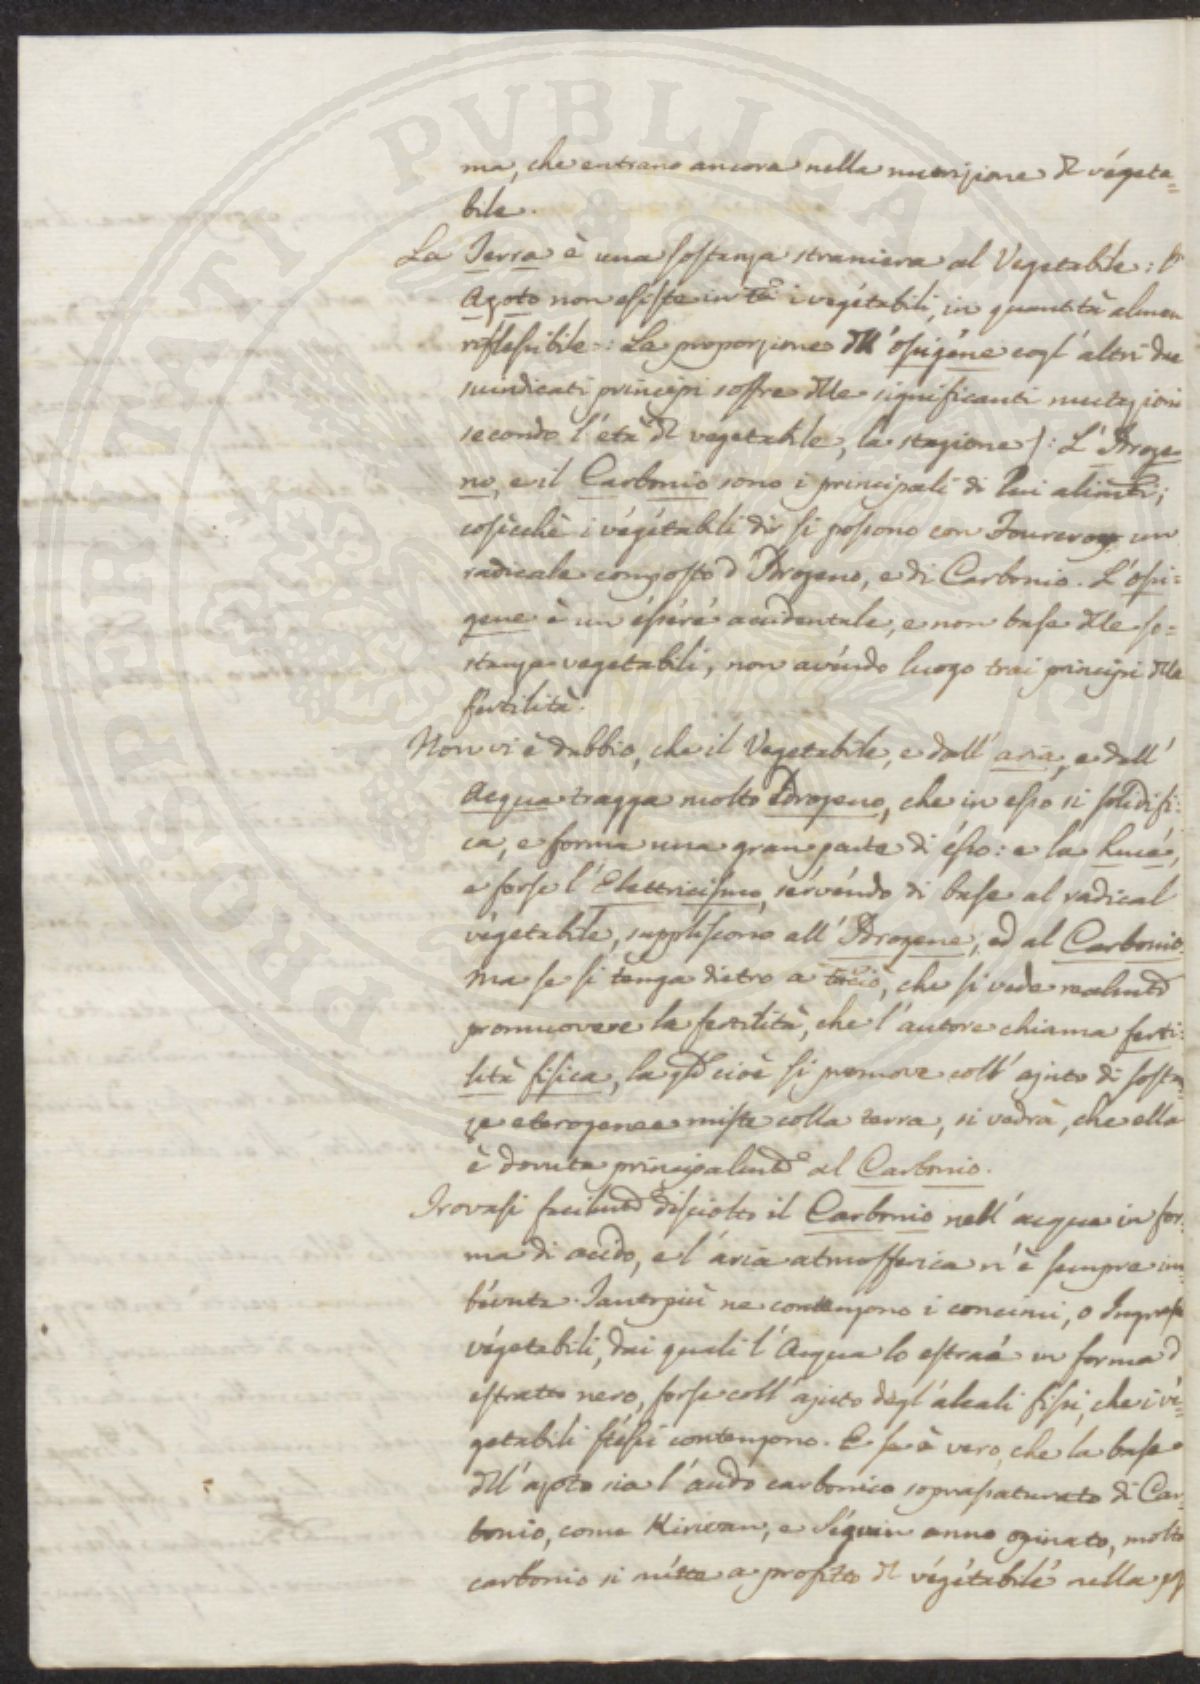 ma, che entrano ancora nella nutrizione dl végeta=
bile.
La Terra è una sostanza straniera al Vegetabile: l'
Azoto non esiste in tti i vegétabili, in quantità almen
riflessibile: La proporzione dll'ossigéne cogl'altri due
suindicati principi soffre dlle significanti mutazioni
secondo l'età dl vegetabile, la stagione): L'Idroge=
no, e il Carbonio sono i principali di lui alimti;
cosicchè i végétabili dir si possono con Fourcroy un
radicale composto d'Idrogeno, e di Carbonio. L'ossi=
gene è un éssére accidentale, e non base dlle so=
stanze vegetabili, non avéndo luogo trai principi dlla
fertilità.
Non vi è dubbio, che il Vegetabile, e dall'aria, e dall'
Acqua tragga molto Idrogeno, che in esso si solidifi=
ca, e forma una gran parte di ésso: e la Lucé,
e forse l'Elettricismo, sérvéndo di base al radical
végetabile, suppliscono all'Idrogene, ed al Carbonio.
Ma se si tenga dietro a tutto ciò, che si vede realmte
promuovere la fertilità, che l'autore chiama ferti=
lità fisica, la qle cioè si promove coll'ajuto di sostan=
ze eterogenee miste colla terra, si vedrà, che ella
è dovuta principalmte al Carbonio.
Trovasi facilmte disciolto il Carbonio nell'acqua in for=
ma di acido, e l'aria atmosferica n'è sempre im=
bévuta. Tantopiù ne contengono i concimi, o Ingrassi
végetabili, dai quali l'Acqua lo estraé in forma d
estratto nero, forse coll'ajuto degl'alcali fissi, che i vé=
getabili stéssi contengono. E se è vero, che la base
dll'azoto sia l'acido carbonico soprasaturato di Car=
bonio, come Kirwan, e Séguin anno opinato, molto
carbonio si métte a profitto dl végétabilé nella